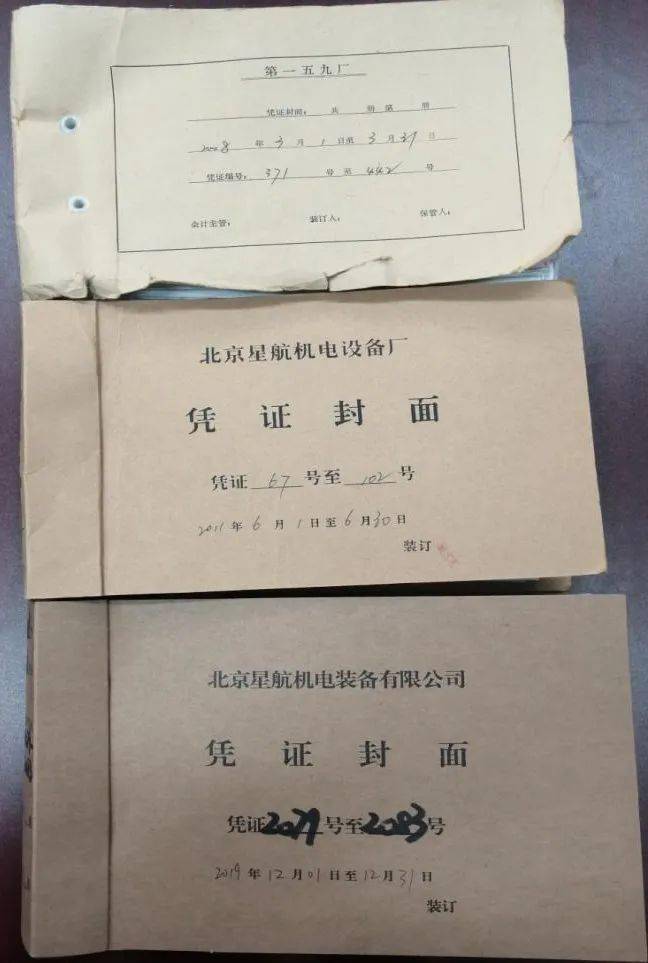 第一五九厂
凭证封面： 共 册第 册
2008 年 3 月 1 日至 3 月 31 日
凭证编号： 371 号至 442 号
会计主管： 装订人： 保管人：
北京星航机电设备厂
凭证封面
凭证 67 号至 102 号
2011 年 6 月 1 日至 6 月 30 日
装订
北京星航机电装备有限公司
凭证封面
凭证 2071 号至 2083 号
2019 年 12 月 01 日至 12 月 31 日
装订